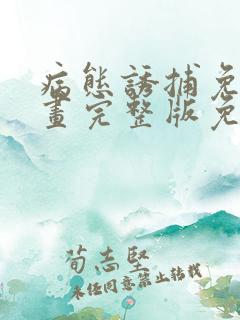 病態誘捕免
畫完整版免
荀志堅
未經同意禁止轉載